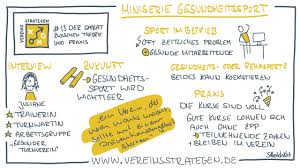 MINISERIE GESUNDHEITSSPORT
VEREINS STRATEGEN
#13 DER SPAGAT
ZWISCHEN THEORIE
UND PRAXIS
SPORT IM BETRIEB
OFT ZEITLICHES PROBLEM
GESUNDE MITARBEITENDE
INTERVIEW
JULIANE
TRAINERIN
TURNWARTIN
ARBEITSGRUPPE
"GESUNDER
TURNVEREIN"
ZUKUNFT
GESUNDHEITS-
SPORT WIRD
WICHTIGER
GESUNDHEITS- ODER REHASPORT?
BEIDES KANN KOEXISTIEREN
PRAXIS
DIE KURSE SIND VOLL
GUTE KURSE LOHNEN SICH
AUCH OHNE ZPP
TEILNEHMENDE ZAHLEN
+ BLEIBEN IM VEREIN
Ein Verein, der
sollte mit einem
starten
WWW.VEREINSSTRATEGEN.DE